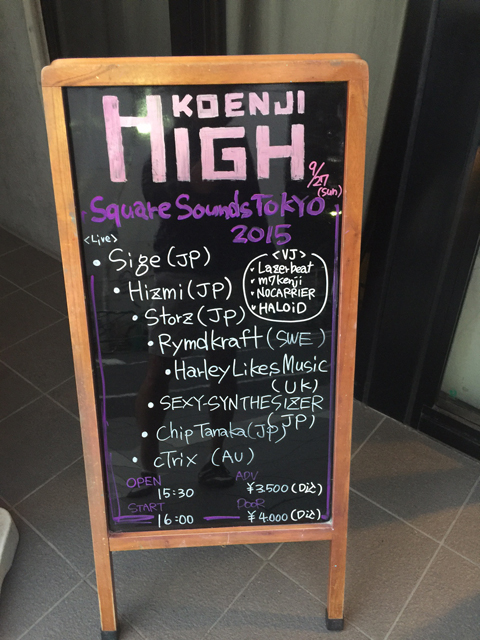 KOENJI
HIGH
9/27
(sun)
Square Sounds TOKYO
2015
<Live>
• Sige (JP)
• Hizmi (JP)
• Storz (JP)
• Rymdkraft (SWE)
• HarleyLikesMusic
(UK)
• SEXY-SYNTHESIZER
(JP)
• ChipTanaka (JP)
• cTrix (AU)
<VJ>
• Lazerbeat
• m7kenji
• NOCARRIER
• HALOiD
OPEN
15:30
START
16:00
ADV
¥3.500 (D込)
DOOR
¥4.000 (D込)